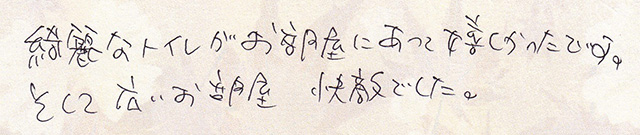 綺麗なトイレがお部屋にあって嬉しかったです。
そして広いお部屋 快適でした。